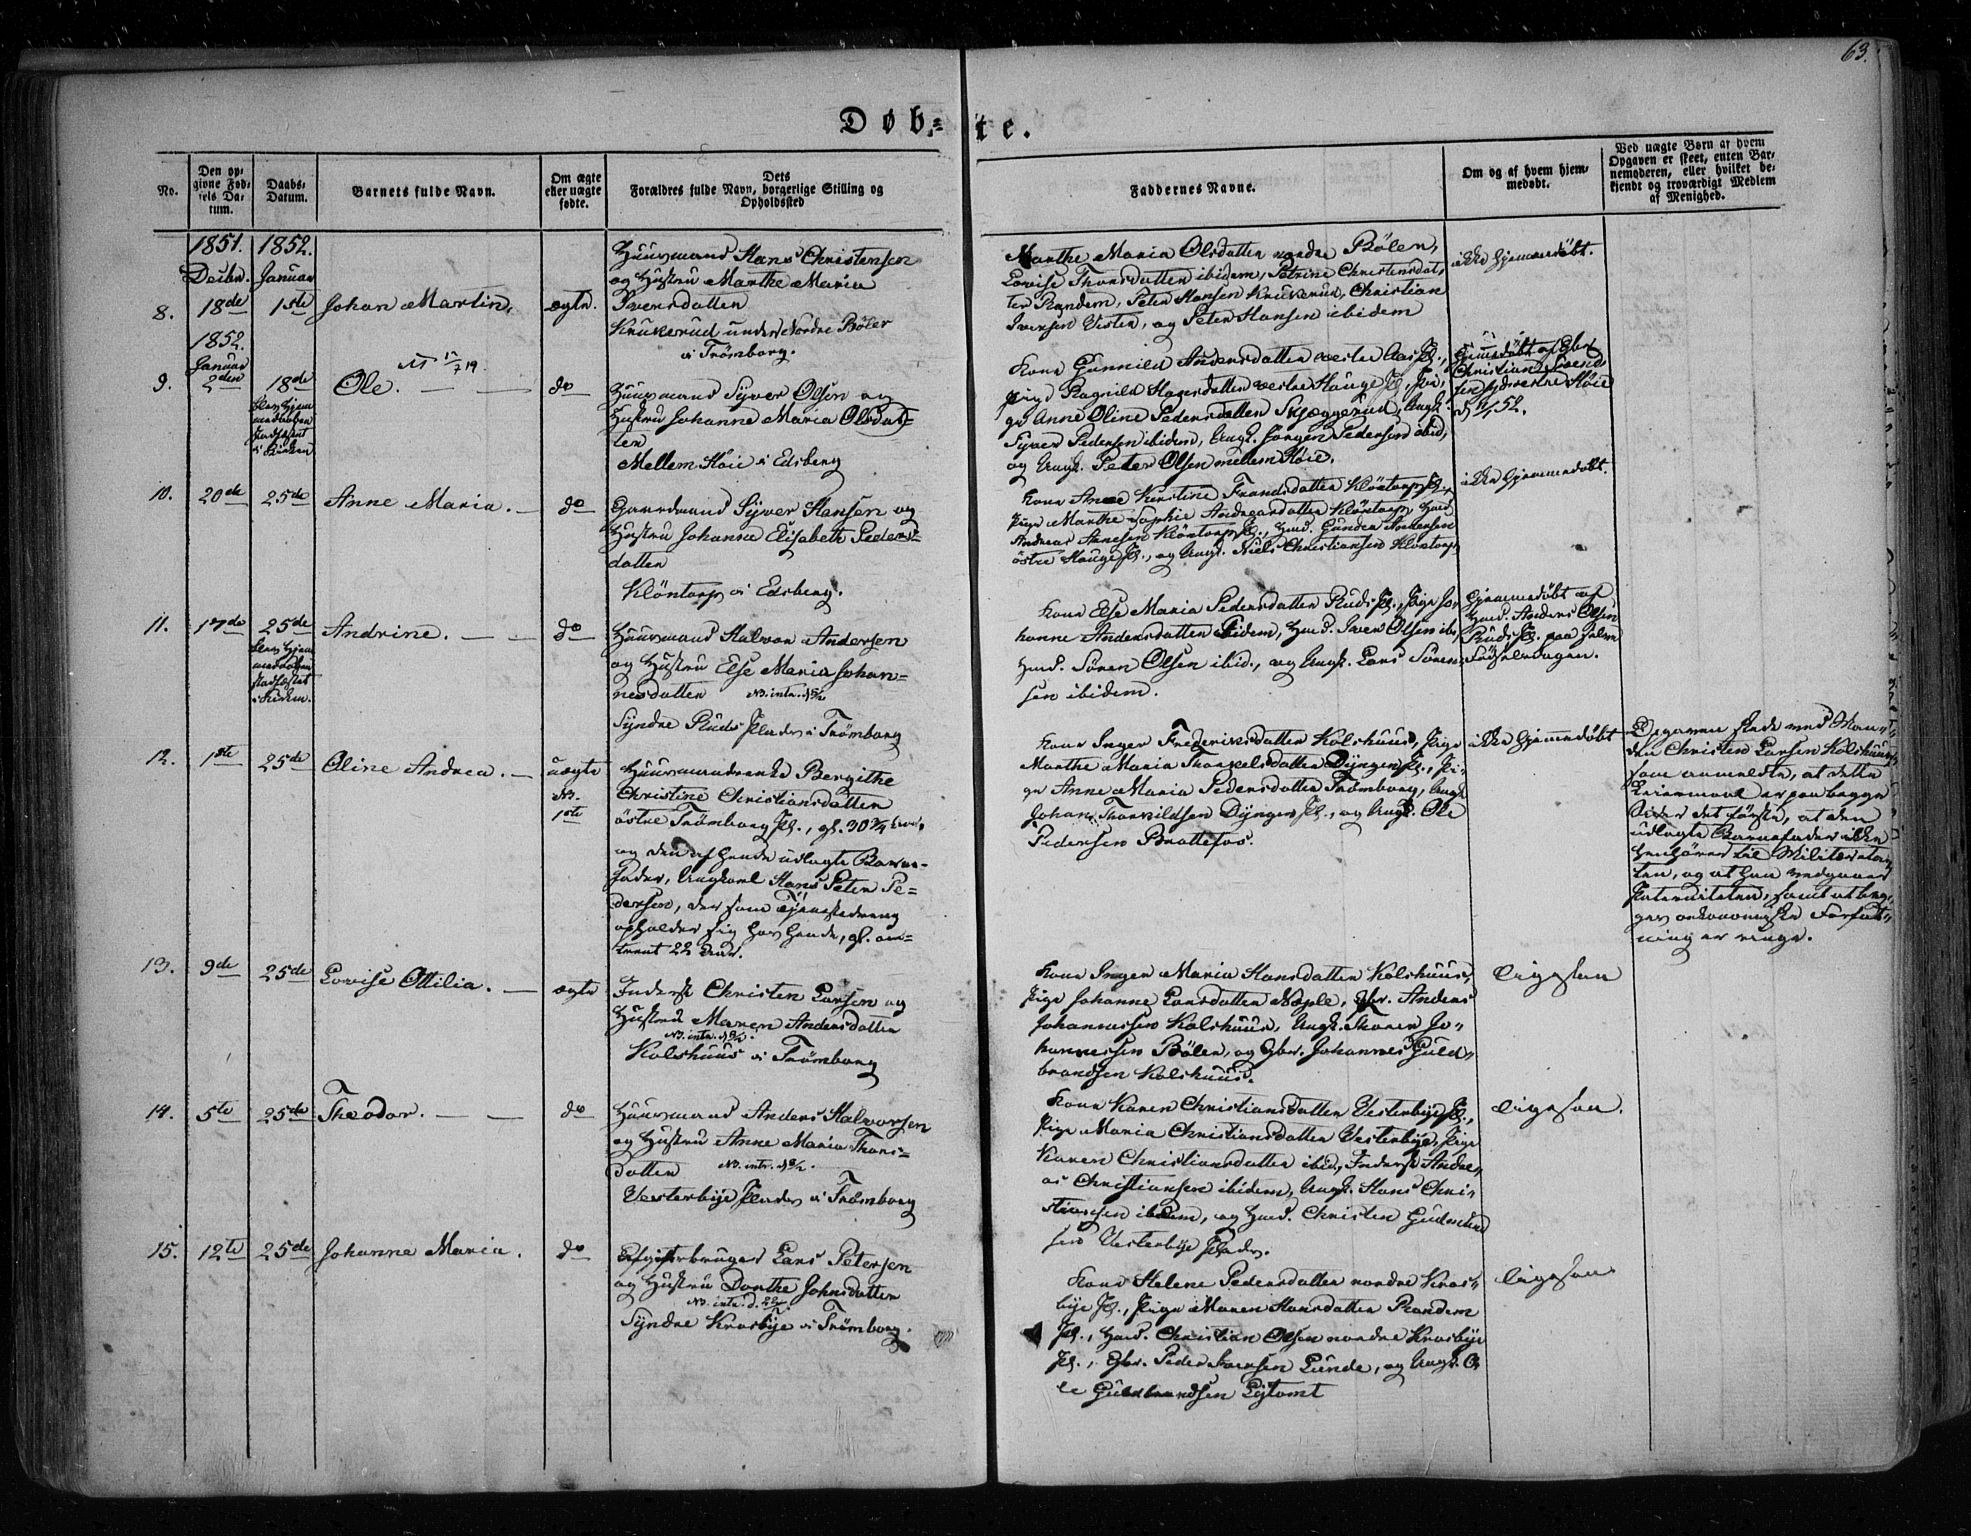 63.
Døb-te.
No.
Den op-
givne Fød-
sels Da-
tum.
Daabs-
Datum.
Barnets fulde Navn.
Om ægte
eller uægte
fødte.
Dets
Forældres fulde Navn, borgerlige Stilling og
Opholdssted
Faddernes Navne.
Om og af hvem hjem-
medøbt.
Ved uægte Børn af hvem
Opgaven er skeet, enten Bar-
nemoderen, eller hvilket be-
kjendt og troværdigt Medlem
af Menighed.
1851. 1852.
Decbr. Januar
8. 18de 1ste Johan Martin, ægte.
Huusmand Hans Christensen
og Hustru Marthe Maria
Iversdatten
Krukerud under Nordre Böler
i Trömborg.
Marthe Maria Olsdatter nordre Bölen,
Lovise Thorsdatten ibidem, Petrine Christensdat-
ter Ramdem, Peter Hansen Krukerud, Christian
Iversen Vister, og Peter Hansen ibidem
ikke hjemmedøbt.
1852.
Januar
9. 2den 18de Ole. do
dens Hjem-
medaaben
stadfæstet
i Kirken
Huusmand Syver Olsen og
Hustru Johanne Maria Olsdat-
ten
Mellem Höie i Edsberg
Kone Gunnild Andersdatten vestre Aas Pl.,
Pige Ragnild Hagensdatten vestre Hauge Pl., Pi-
ge Anne Oline Pedersdatten Skjæggerud, Ungk.
Syver Pedersen ibidem, Ungk. Jörgen Pedersen ibid,
og Ungk. Peter Olsen mellem Höie.
Hjemmedøbt af Gbr.
Christian Svend-
sen vestre Höie
52.
10. 20de 25de Anne Maria. do
Gaardmand Syver Hansen og
Hustru Johanne Elisabeth Peders-
datten
Klöntorp i Edsberg.
Kone Anne Kirstine Frandsdatten Klöntorp Pl.,
Pige Marthe Sophie Andreasdatten Klöntorp, Hmd.
Andreas Arnesen Klöntorp Pl., Hmd. Gunder Andersen
östre Hauge Pl., og Ungk. Niels Christiansen Klöntorp.
ikke Hjemmedøbt.
11. 17de 25de Andrine. do
dens Hjem-
medaaben
stadfæstet
i Kirken.
Huusmand Halvor Andersen
og Hustru Else Maria Johan-
nesdatten NB. intr. d
Syndre Ruds Plads i Trömborg
Kone Else Maria Pedersdatten Ruds Pl., Pige Jo-
hanne Andersdatten ibidem, Hmd. Iver Olsen ib.,
Hmd. Sören Olsen ibid., og Ungk. Lars Sören-
sen ibidem.
Hjemmedøbt af
Hmd. Anders Olsen
Ruds Pl. paa selve
Födselsdagen.
12. 1ste 25de Oline Andrea. uægte
NB.
1ste
Huusmandsenke Bergithe
Christine Christiansdatten
östre Trömborg Pl., gl. 30 3/4
og den af hende udlagte Barne-
fader, Ungkarl Hans Peter Pe-
dersen, der som Tjenestedreng
opholder sig hos hende, gl. om-
trent 22 Aar.
Kone Inger Frederiksdatten Kolshuus, Pige
Marthe Maria Thorkelsdatten Dyngen Pl., Pi-
ge Anne Maria Pedersdatten Trömborg, Ungk.
Johan Thorkildsen Dyngen Pl., og Ungk. Ole
Pedersen Brattefos.
ikke hjemmedøbt
Opgaven skede ved Man-
den Christen Larsen Kolshuus,
som anmeldte, at dette
Leiermaal er paa begge
Sider det förste, at den
udlagte Barnefader ikke
henhörer til Militæreta-
ten, og at han vedgaaer
Paterniteten, samt at beg-
ges oekonomiske Forfat-
ning er ringe.
13. 9de 25de Lovise Ottilia. ægte
Inderst Christen Larsen og
Hustru Maren Andersdatten
NB. intr. d
Kolshuus i Trömborg
Kone Inger Maria Hansdatten Kolshuus,
Pige Johanne Larsdatten Næple, Gbr. Anders
Johannessen Kolshuus, Ungk. Thoren Jo-
hannessen Bölen, og Gbr. Johannes Guld-
brandsen Kolshuus.
Ligesaa
14. 5te 25de Theodor. do
Huusmand Anders Halvorsen
og Hustru Anne Maria Thors-
datten NB. intr. d
Vesterbye Plads i Trömborg
Kone Karen Christiansdatten Vesterbye Pl.,
Pige Maria Christiansdatten Vesterbye, Pige
Karen Christiansdatten ibid., Inderst Andre-
as Christiansen ibidem, Ungk. Hans Chri-
stiansen ibidem, og Hmd. Christen Gudmund-
sen Vesterbye Plads.
Ligesaa.
15. 12te 25de Johanne Maria. do
Afgiftsbruger Lars Petersen
og Hustru Dorthe Johnsdatten
NB. intr. d. 22
Syndre Krosbye i Trömborg.
Kone Helene Pedersdatten nordre Kros-
bye Pl., Pige Maren Hansdatten Ramdem
Pl., Hmd. Christian Olsen nordre Krosbye
Pl., Gbr. Peder Iversen Lunde, og Ungk. O-
le Guldbrandsen Egtomt
Ligesaa